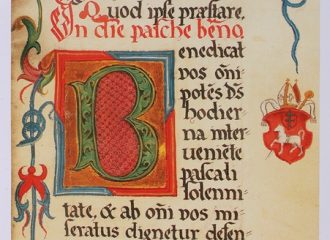 Quod ipse præstare.
In die pasche bẽno
Benedicat
vos oñi
potẽs dš
hodier
na inter
veniẽte
pascali
solenni
tate, & ab oñi vos mi
seratus dignetur defen